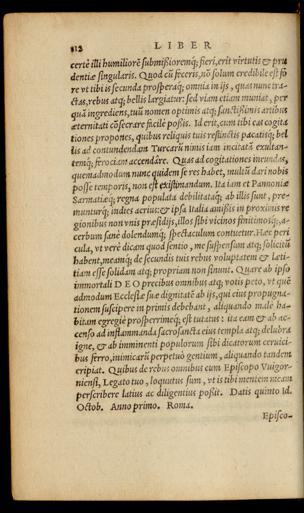 112 LIBER
certè illi humiliorē submißioremq́; fieri, erit virtutis & pru
dentiæ singularis. Quod cū feceris, nō solum credibile est fo
re vt tibi is secunda prosperaq́; omnia in ijs, quas nunc tra-
ctas, rebus atq; bellis largiatur: sed viam etiam muniat, per
quā ingrediens, tuū nomen optimis atq; sanctißimis artibus
æternitati cōsecrare facile poßis. Id erit, cum tibi eas cogita
tiones propones, quibus reliquis tuis restinctis pacatisq́; bel
lis ad contundendam Turcarū nimis iam incitatā exultan-
temq́; ferociam accendare. Quas ad cogitationes ineundas,
quemadmodum nunc quidem se res habet, multū dari nobis
posse temporis, non est existimandum. Ita iam et Pannoniæ
Sarmatiæq́; regna populata debilitataq́; ab illis sunt, pre-
munturq́; indies acrius: & ipsa Italia amißis in proximis re
gionibus non vnis præsidijs, illos sibi vicinos finitimosq́;, a-
cerbum sanè dolendumq́; spectaculum contuetur. Hac peri
cula, vt verè dicam quod sentio, me suspensum atq; solicitū
habent, meamq́; de secundis tuis rebus voluptatem & læti-
tiam esse solidam atq; propriam non sinunt. Quare ab ipso
immortali DEO precibus omnibus atq; votis peto, vt quē
admodum Ecclesiæ suæ dignitatē ab ijs, qui eius propugna-
tionem suscipere in primis debebant, aliquando malè ha-
bitam egregiè prosperrimeq́; est tutatus: ita eam & ab ac-
censo ad inflammanda sacrosancta eius templa atq; delubra
igne, & ab imminenti populorum sibi dicatorum ceruici-
bus ferro, inimicarū perpetuò gentium, aliquando tandem
eripiat. Quibus de rebus omnibus cum Episcopo Vuigor-
niensi, Legato tuo, loquutus sum, vt is tibi mentem meam
perscribere latius ac diligentius poßit. Datis quinto Id.
Octob. Anno primo. Roma.
Episco-